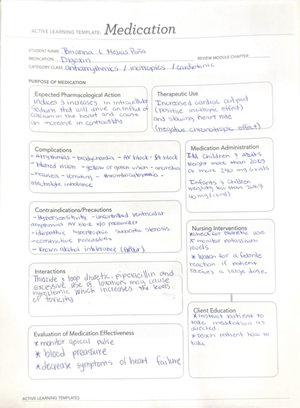 ACTIVE LEARNING TEMPLATE: Medication
STUDENT NAME Brianna L Mejias Peña
MEDICATION Digoxin
REVIEW MODULE CHAPTER
CATEGORY CLASS antiarrhythmics / inotropics / cardiotonic
PURPOSE OF MEDICATION
Expected Pharmacological Action
induces increases in intracellular
sodium that will drive an influx of
calcium in the heart and cause
an increase in contractility
Therapeutic Use
Increased cardiac output
(positive inotropic effect)
and slowing heart rate
(negative chronotropic effect)
Complications
- arrhythmias - bradycardia - AV block - SA block
- blurred vision - yellow or green vision - anorexia
- nausea - vomiting - thrombocytopenia -
electrolyte imbalance
Medication Administration
children & adults
weigh more than
or more
Infants & children
weighing less than
Contraindications/Precautions
- Hypersensitivity - uncontrolled ventricular
arrhythmias AV block w/o pacemaker
- idiopathic hypertrophic subaortic stenosis
- constrictive pericarditis
- known alcohol intolerance (elixir)
Nursing Interventions
* monitor potassium
levels
* Watch for a
reaction if patient
receives a large dose.
Interactions
Thiazide & loop diuretic, piperacillin and
excessive use of laxatives may cause
hypokalemia which increases the levels
of toxicity
Client Education
* instruct patient to
take medication as
directed.
* teach patient how to
take
Evaluation of Medication Effectiveness
* monitor apical pulse
* blood pressure
* decrease symptoms of heart failure
ACTIVE LEARNING TEMPLATES